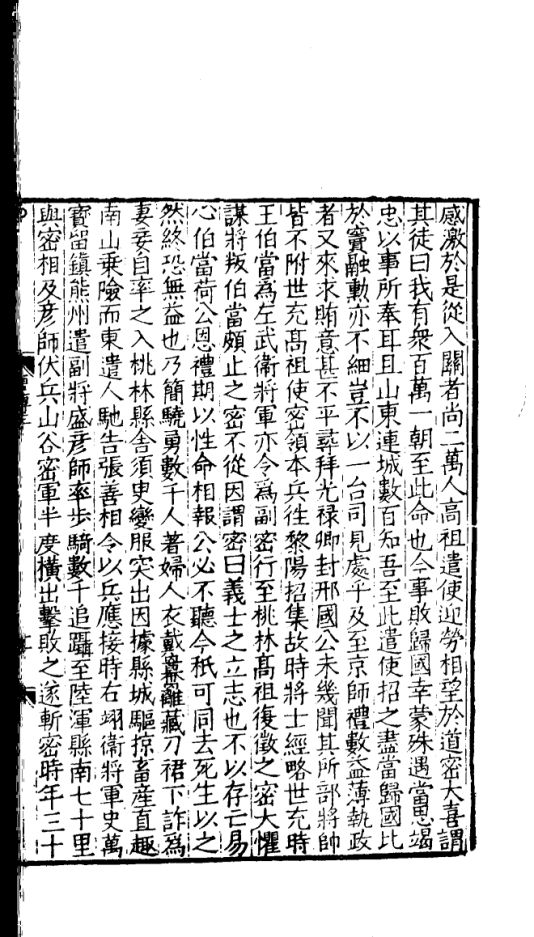 感激於是從入關者尚二萬人高祖遣使迎勞相望於道密大喜謂
其徒曰我有衆百萬一朝至此命也今事敗歸國幸蒙殊遇當思竭
忠以事所奉耳且山東連城數百知吾至此遣使招之盡當歸國比
於竇融勲亦不細豈不以一台司見處乎及至京師禮數益薄執政
者又來求賄意甚不平尋拜光禄卿封邢國公未幾聞其所部將帥
皆不附世充髙祖使密領本兵徃黎陽招集故時將士經略世充時
王伯當爲左武衛將軍亦令爲副密行至桃林髙祖復徵之密大懼
謀將叛伯當頗止之密不從因謂密曰義士之立志也不以存亡易
心伯當荷公恩禮期以性命相報公必不聽今秖可同去死生以之
然終恐無益也乃簡驍勇數千人著婦人衣戴羃䍦藏刀裙下詐爲
妻妾自率之入桃林縣舍須臾變服突出因據縣城驅掠畜産直趣
南山乗險而東遣人馳告張善相令以兵應接時右翊衛將軍史萬
寳留鎮熊州遣副將盛彦師率步騎數千追躡至陸渾縣南七十里
與密相及彦師伏兵山谷密軍半度横出擊敗之遂斬密時年三十